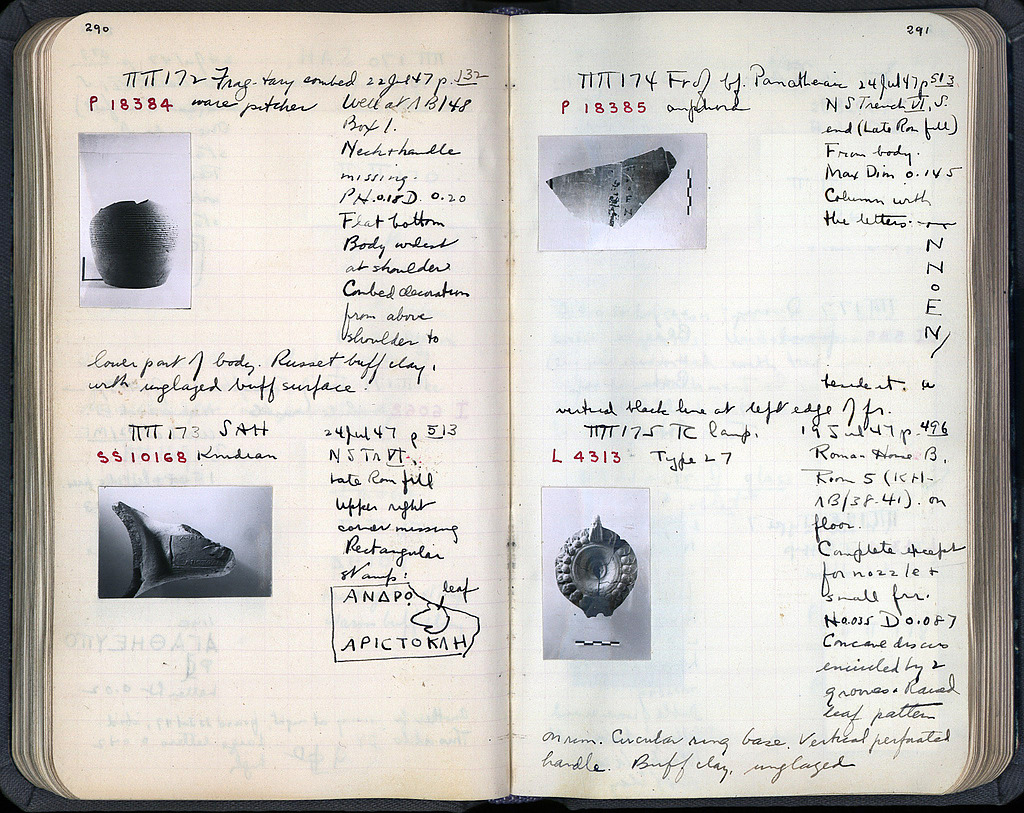 290
ΠΠ172 Frag-tary combed 22 Jul 47 p. 132
P 18384 ware pitcher Well at ΛB/48
Box 1.
Neck + handle
missing.
P.H. 0.18 D. 0.20
Flat bottom
Body widest
at shoulder
Combed decoration
from above
shoulder to
lower part of body. Russet buff clay,
with unglazed buff surface.
ΠΠ173 SAH 24 Jul 47 p 513
SS 10168 Knidian N S Tr VI,
Late Rom fill
Upper right
corner missing
Rectangular
stamp:
ΑΝΔΡΟ leaf
ΑΡΙΣΤΟΚΛΗ
291
ΠΠ174 Fr of bf. Panathenaic 24 Jul 47 p 513
P 18385 amphora N S Trench VI, S.
end (Late Rom fill)
From body.
Max Dim 0.145
Column with
the letters:
N
N
O
E
N
to
vertical black line at left edge of fr.
ΠΠ175 TC lamp. 19 Jul 47 p. 496
L 4313 Type 27 Roman House B,
Room 5 (KH-
ΛB/38-41). on
floor.
Complete except
for nozzle +
small frr.
H 0.035 D 0.087
Concave discus
encircled by 2
grooves. Raised
leaf pattern
on rim. Circular ring base. Vertical perforated
handle. Buff clay, unglazed